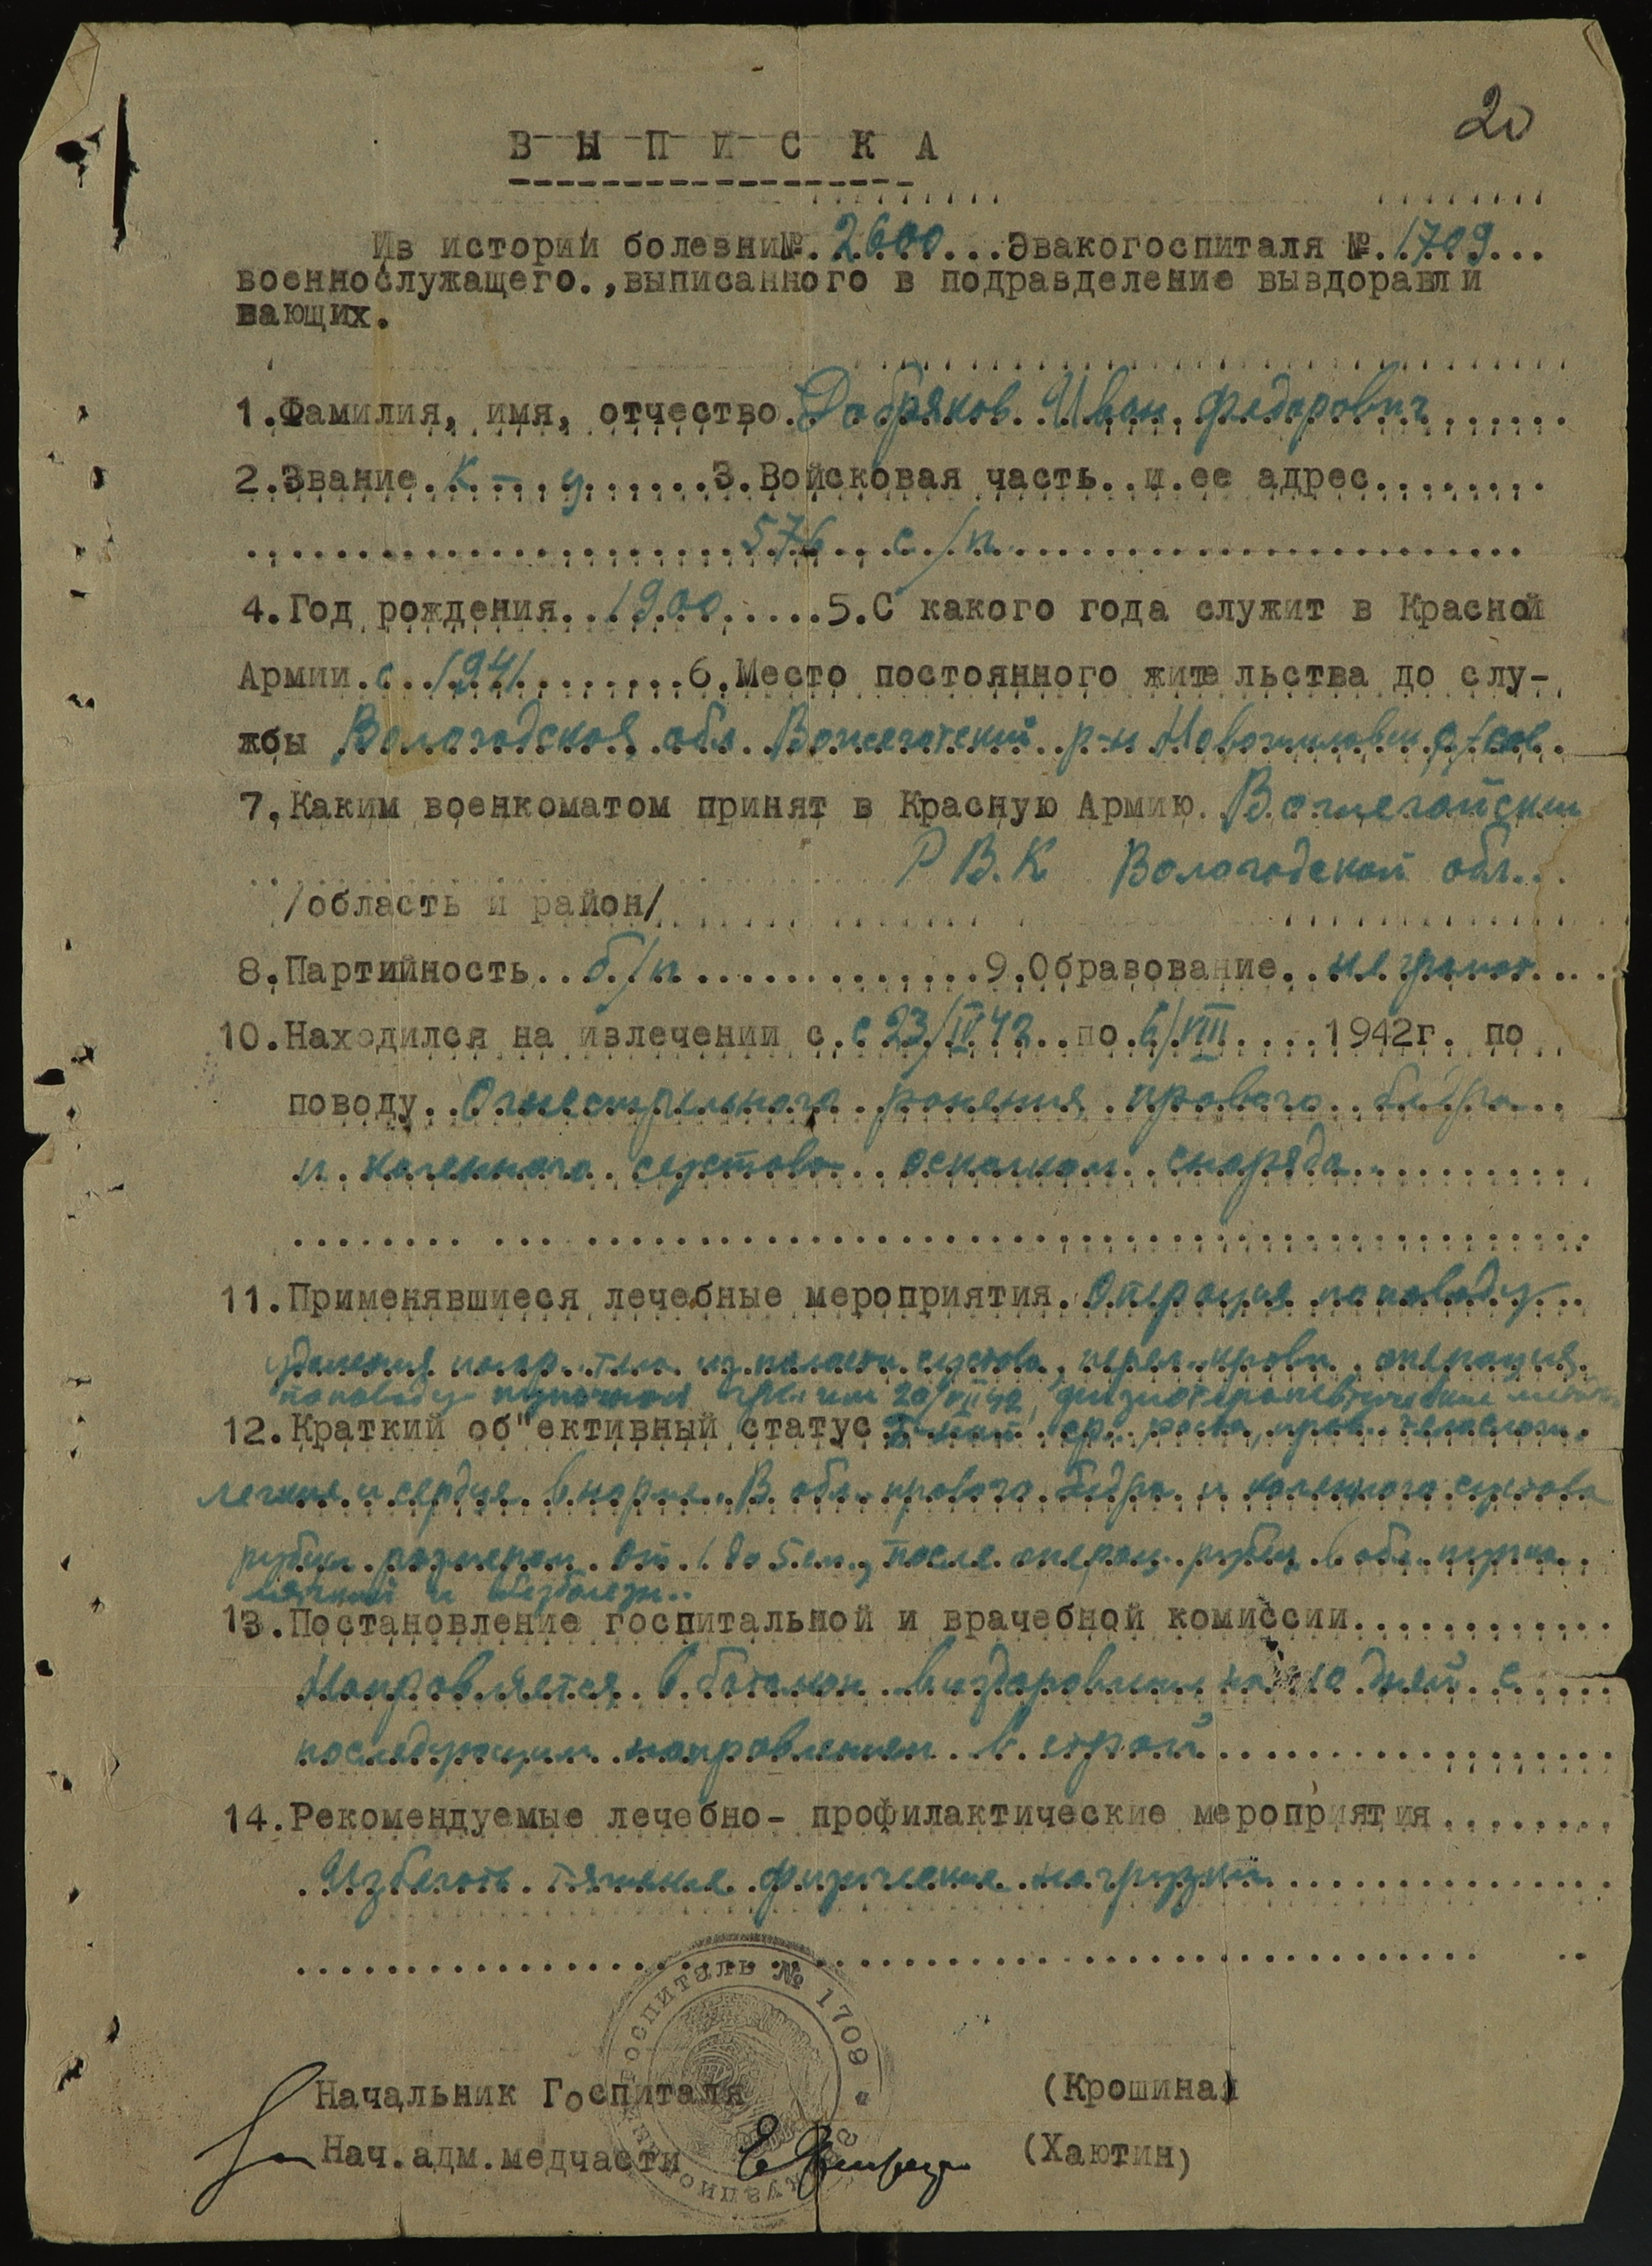 20
В Ы П И С К А
Из истории болезни№.2600...Эвакогоспиталя №.1709...
военнослужащего.,выписанного в подразделение выздоравли
вающих.
1.Фамилия, имя, отчество.Добряков Иван Федорович......
2.Звание.К-.у......3.Войсковая часть..и.ее адрес........
576 с/п
4.Год рождения..1900.....5.С какого года служит в Красной
Армии.с.1941.........6.Место постоянного жительства до слу-
жбы Вологодская обл. Вожеготский р-н с/сов.
7.Каким военкоматом принят в Красную Армию.
Р В.К Вологодской обл...
/область и район/
8.Партийность..б/п..............9.Образование..неграмот...
10.Находился на излечении с.с 23/IV 42..по.6/VIII....1942г. по
поводу..Огнестрельного ранения правого бедра..
и коленного сустава осколком снаряда
11.Применявшиеся лечебные мероприятия.Операция по поводу..
удаления инор. тела из полости сустава, перел. крови, операция
по поводу грыжи 20/VII 42, физиотерапевтические
12.Краткий об"ективный статус ср. роста, прав. телослож.
легкие и сердце в норме. В обл. правого бедра и коленного сустава
рубцы размером от 1 до 5 см., после операц. рубец в обл. пупка
мягкий и безболезн..
13.Постановление госпитальной и врачебной комиссии............
Направляется в батальон на 10 дней с
последующим направлением в строй
14.Рекомендуемые лечебно- профилактические мероприятия........
Избегать тяжелые физические нагрузки
госпиталь № 1709
Начальник Госпиталя (Крошина)
Нач.адм.медчасти (Хаютин)